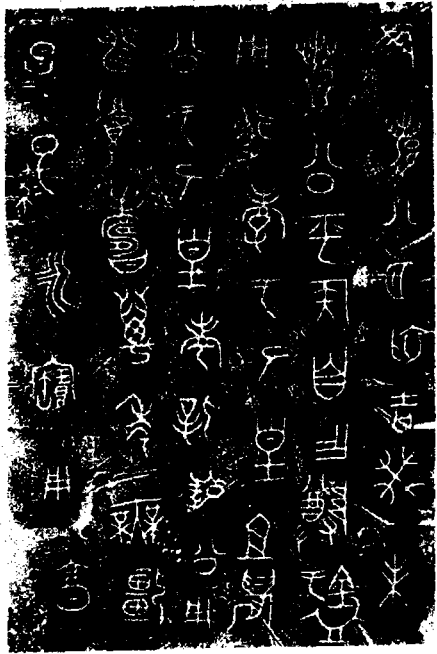 隹鄀八月初吉癸未
鄀公平侯自乍尊錳
用追孝于厥皇且晨
公于厥皇考公用
易眉壽萬年無疆
子孫永寶用享